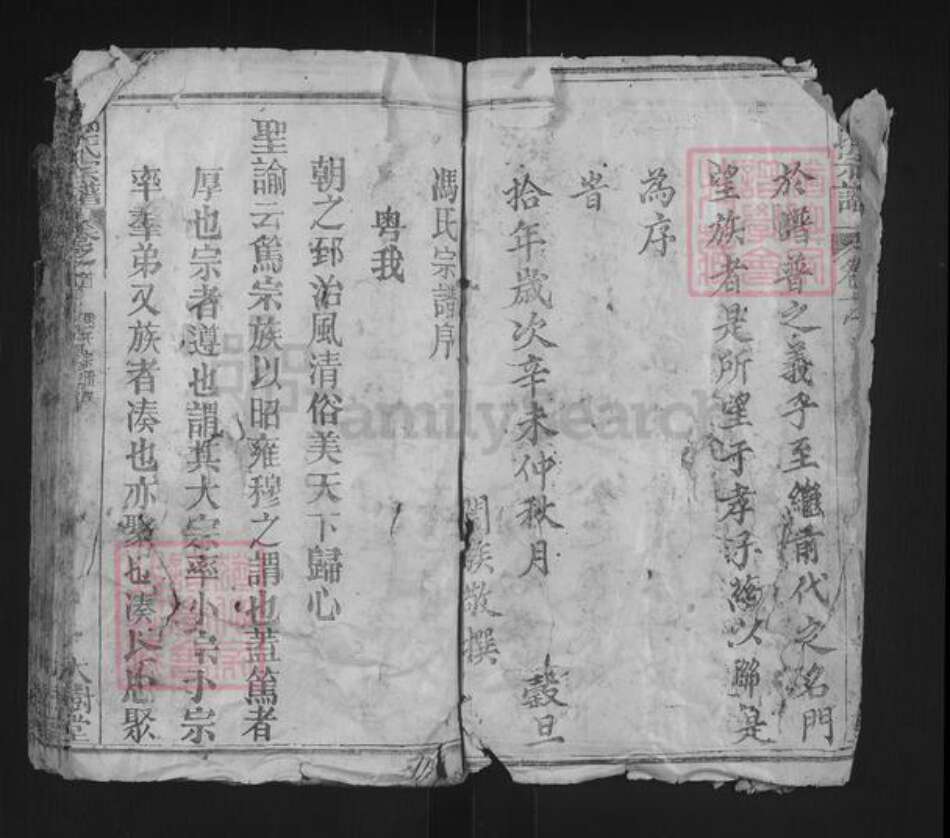 於譜普之義乎至繼前代之名門
望族者是所望于孝子慈以聯是
為序
旹
拾年歲次辛未仲秋月 穀旦
闔族敬撰
馮氏宗譜序
粤我
朝之郅治風清俗美天下歸心
聖諭云篤宗族以昭雍穆之謂也蓋篤者
厚也宗者遵也謂其大宗率小宗小宗
率羣弟又族者凑也亦聚也凑
聚
大樹堂
FamilySearch